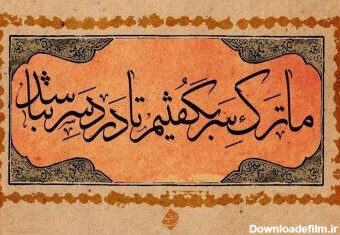 ما ترک سر بگفتیم تا درد سر نباشد
Downloadefilm.ir